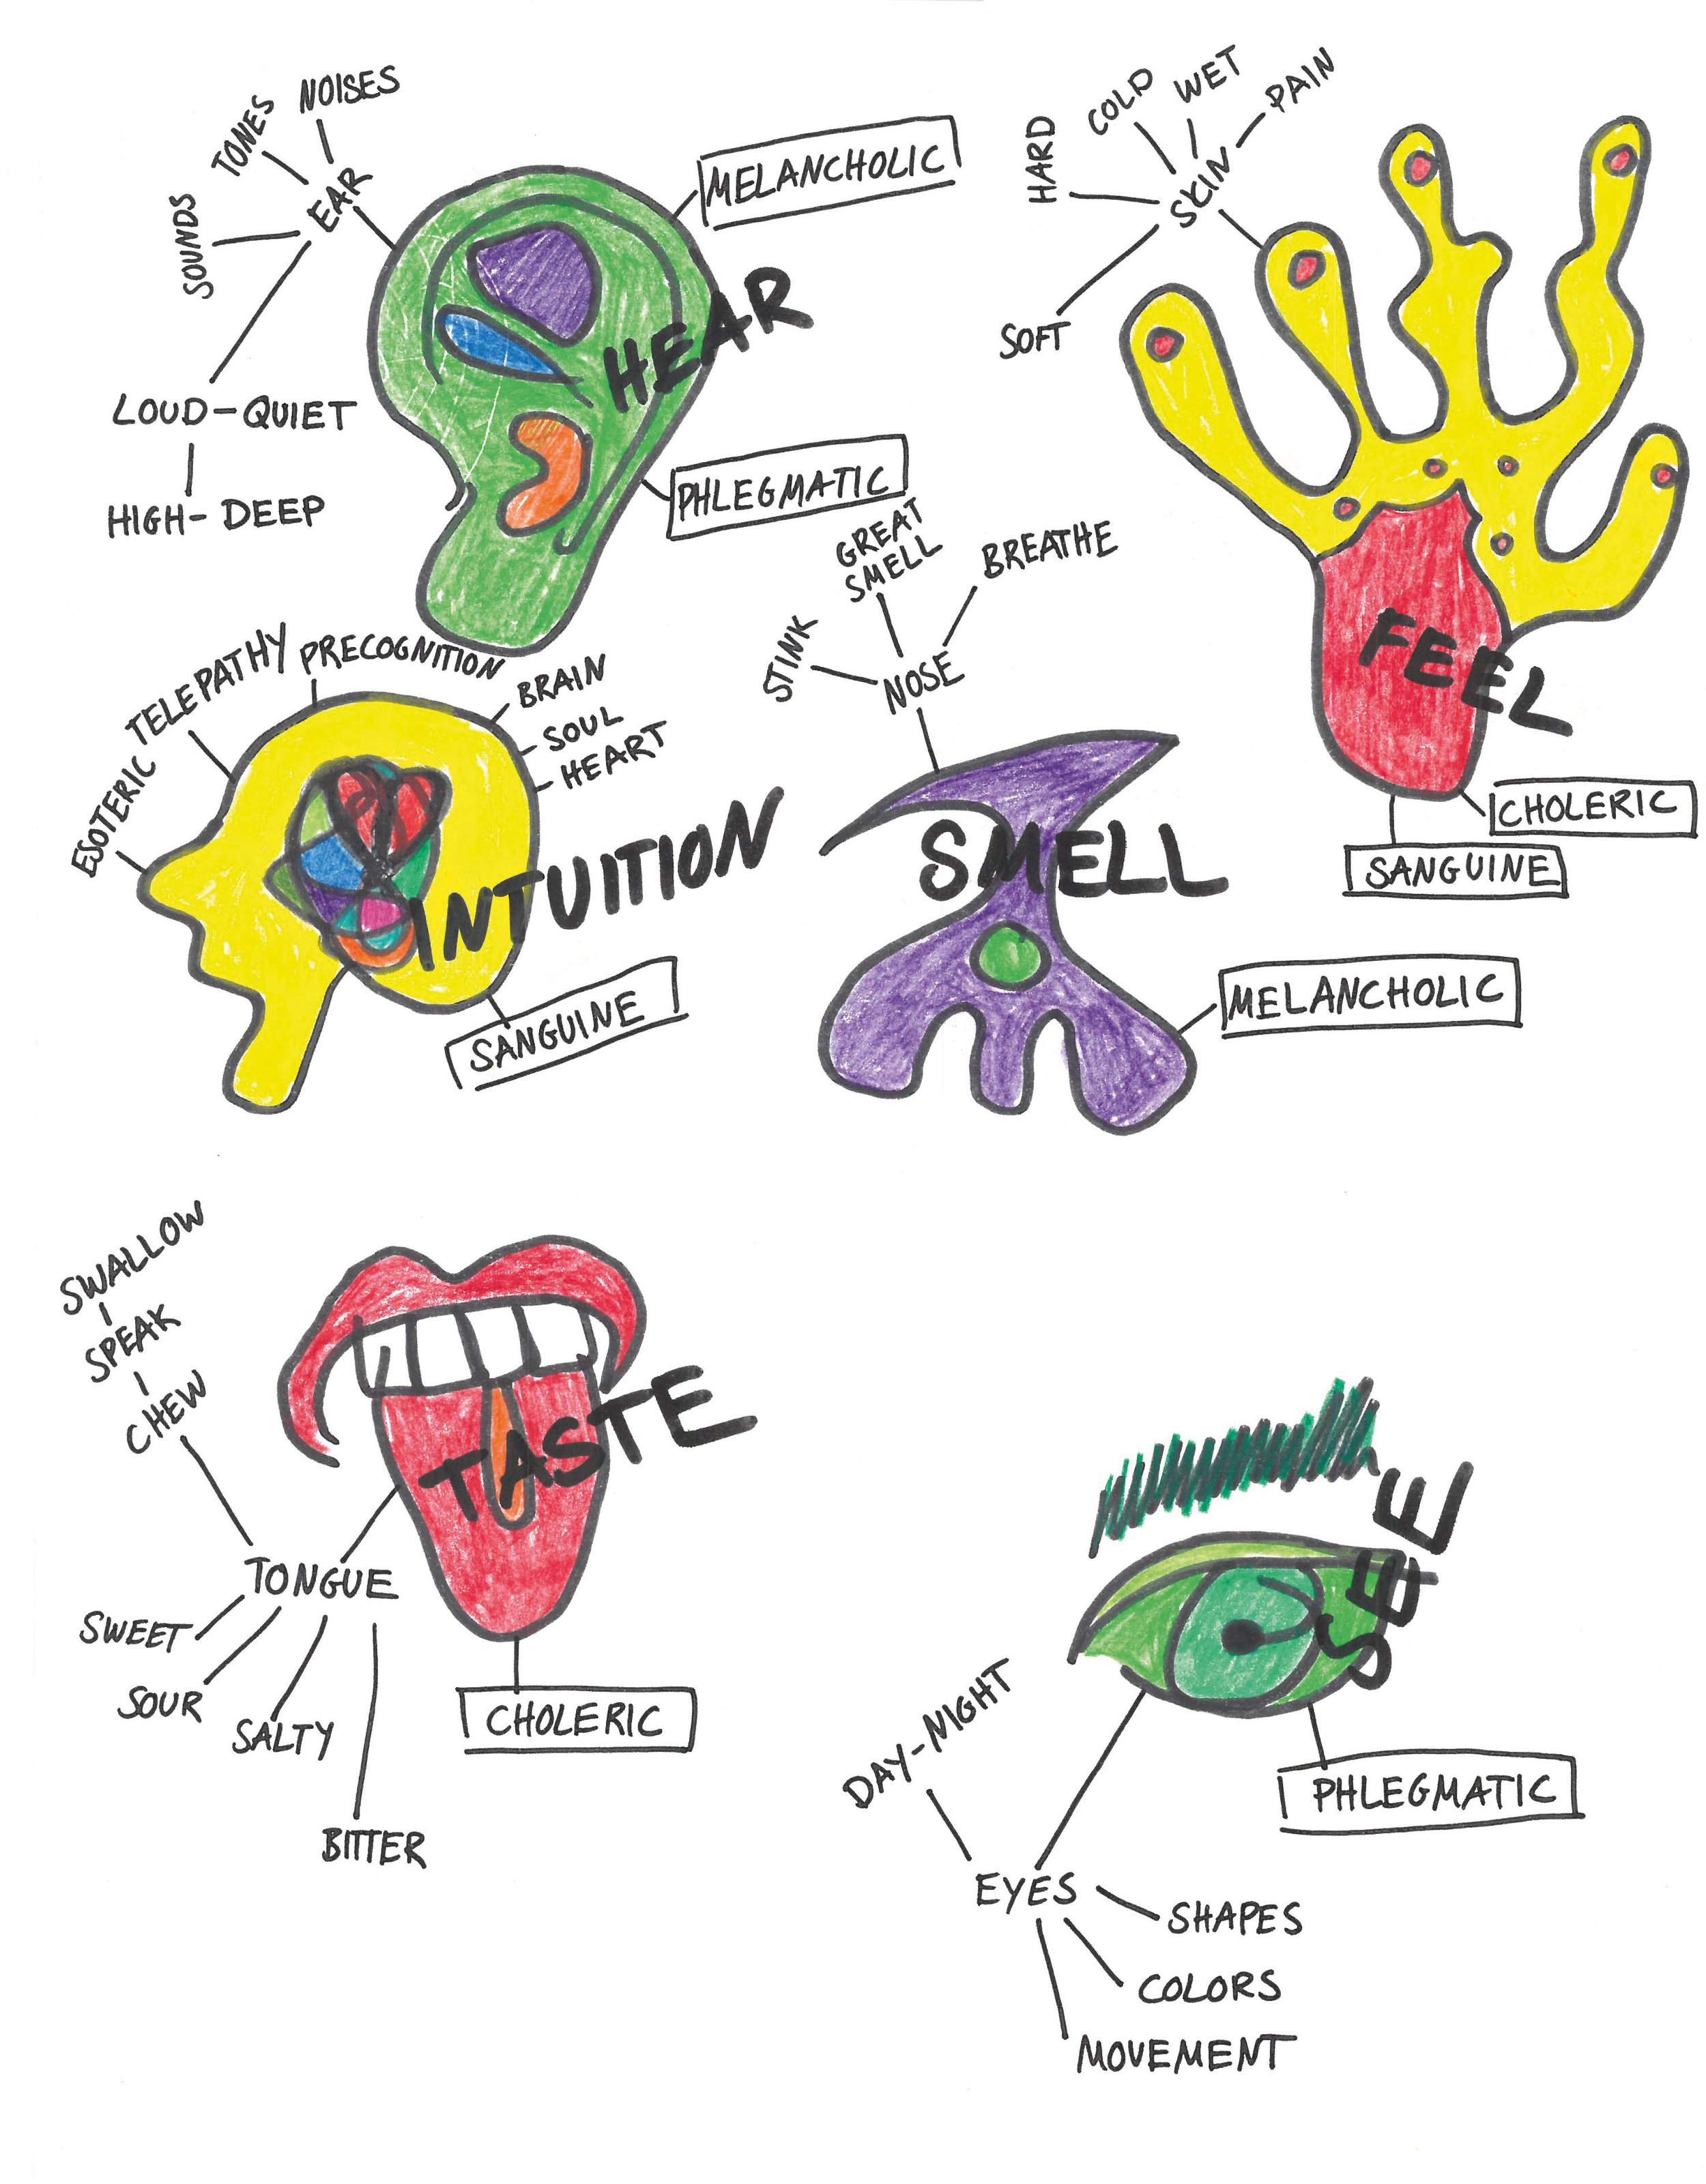 NOISES
TONES
SOUNDS
EAR
LOUD-QUIET
HIGH-DEEP
HEAR
MELANCHOLIC
PHLEGMATIC
HARD
COLD
WET
PAIN
SKIN
SOFT
FEEL
CHOLERIC
SANGUINE
ESOTERIC
TELEPATHY
PRECOGNITION
BRAIN
SOUL
HEART
INTUITION
SANGUINE
STINK
GREAT
SMELL
BREATHE
NOSE
SMELL
MELANCHOLIC
SWALLOW
SPEAK
CHEW
TASTE
TONGUE
SWEET
SOUR
SALTY
BITTER
CHOLERIC
SEE
DAY-NIGHT
PHLEGMATIC
EYES
SHAPES
COLORS
MOVEMENT